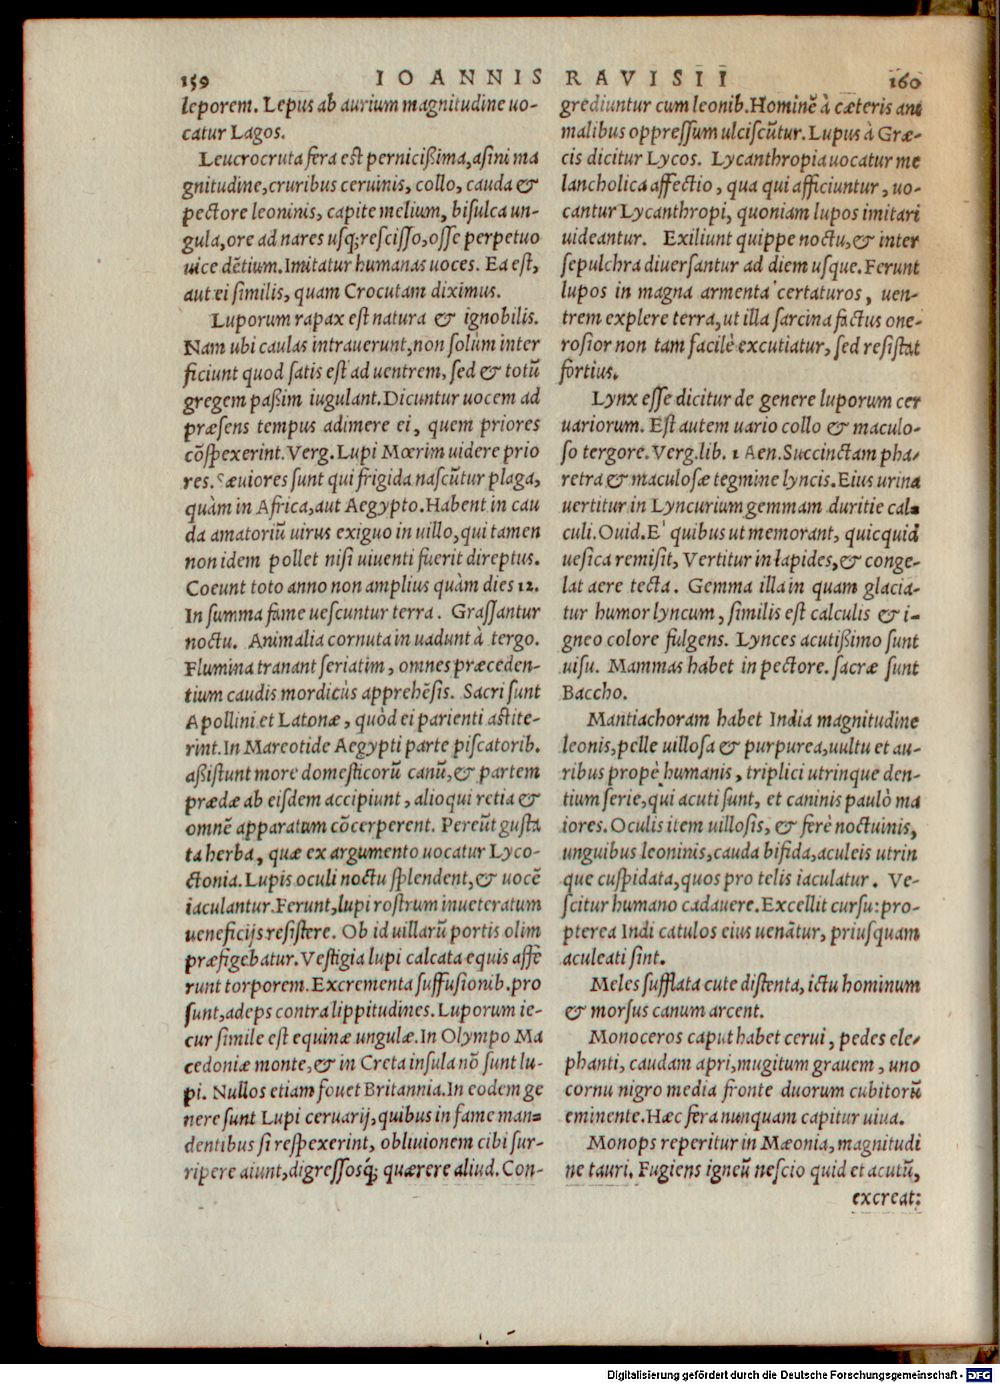 159 IOANNIS RAVISII 160
leporem. Lepus ab aurium magnitudine uo-
catur Lagos.
Leucrocruta fera est pernicißima, asini ma
gnitudine, cruribus ceruinis, collo, cauda &
pectore leoninis, capite melium, bisulca un-
gula, ore ad nares usq; rescisso, osse perpetuo
uice dētium. Imitatur humanas uoces. Ea est,
aut ei similis, quam Crocutam diximus.
Luporum rapax est natura & ignobilis.
Nam ubi caulas intrauerunt, non solùm inter
ficiunt quod satis est ad uentrem, sed & totū
gregem paßim iugulant. Dicuntur uocem ad
præsens tempus adimere ei, quem priores
cōspexerint. Verg. Lupi Mœrim uidere prio
res. Sæuiores sunt qui frigida nascūtur plaga,
quàm in Africa, aut Aegypto. Habent in cau
da amatoriū uirus exiguo in uillo, qui tamen
non idem pollet nisi uiuenti fuerit direptus.
Coeunt toto anno non amplius quàm dies 12.
In summa fame uescuntur terra. Grassantur
noctu. Animalia cornuta in uadunt à tergo.
Flumina tranant seriatim, omnes præceden-
tium caudis mordicùs apprehēsis. Sacri sunt
Apollini et Latonæ, quòd ei parienti astite-
rint. In Mareotide Aegypti parte piscatorib.
aßistunt more domesticorū canū, & partem
prædæ ab eisdem accipiunt, alioqui retia &
omnē apparatum cōcerperent. Pereūt gusta
ta herba, quæ ex argumento uocatur Lyco-
ctonia. Lupis oculi noctu splendent, & uocē
iaculantur. Ferunt, lupi rostrum inueteratum
ueneficijs resistere. Ob id uillarū portis olim
præfigebatur. Vestigia lupi calcata equis affē
runt torporem. Excrementa suffusionib. pro
sunt, adeps contra lippitudines. Luporum ie-
cur simile est equinæ ungulæ. In Olympo Ma
cedoniæ monte, & in Creta insula nō sunt lu-
pi. Nullos etiam fouet Britannia. In eodem ge
nere sunt Lupi ceruarij, quibus in fame man-
dentibus si respexerint, obliuionem cibi sur-
ripere aiunt, digressosq́; quærere aliud. Con-
grediuntur cum leonib. Hominē à cæteris ani
malibus oppressum ulciscūtur. Lupus à Græ-
cis dicitur Lycos. Lycanthropia uocatur me
lancholica affectio, qua qui afficiuntur, uo-
cantur Lycanthropi, quoniam lupos imitari
uideantur. Exiliunt quippe noctu, & inter
sepulchra diuersantur ad diem usque. Ferunt
lupos in magna armenta certaturos, uen-
trem explere terra, ut illa sarcina factus one-
rosior non tam facilè excutiatur, sed resistat
fortius.
Lynx esse dicitur de genere luporum cer
uariorum. Est autem uario collo & maculo-
so tergore. Verg. lib. 1 Aen. Succinctam pha-
retra & maculosæ tegmine lyncis. Eius urina
uertitur in Lyncurium gemmam duritie cal-
culi. Ouid. E' quibus ut memorant, quicquid
uesica remisit, Vertitur in lapides, & conge-
lat aere tecta. Gemma illa in quam glacia-
tur humor lyncum, similis est calculis & i-
gneo colore fulgens. Lynces acutißimo sunt
uisu. Mammas habet in pectore. sacræ sunt
Baccho.
Mantiachoram habet India magnitudine
leonis, pelle uillosa & purpurea, uultu et au-
ribus propè humanis, triplici utrinque den-
tium serie, qui acuti sunt, et caninis paulò ma
iores. Oculis item uillosis, & ferè noctuinis,
unguibus leoninis, cauda bifida, aculeis utrin
que cuspidata, quos pro telis iaculatur. Ve-
scitur humano cadauere. Excellit cursu: pro-
pterea Indi catulos eius uenātur, priusquam
aculeati sint.
Meles sufflata cute distenta, ictu hominum
& morsus canum arcent.
Monoceros caput habet cerui, pedes ele-
phanti, caudam apri, mugitum grauem, uno
cornu nigro media fronte duorum cubitorū
eminente. Hæc fera nunquam capitur uiua.
Monops reperitur in Mæonia, magnitudi
ne tauri. Fugiens igneū nescio quid et acutū,
excreat:
Digitalisierung gefördert durch die Deutsche Forschungsgemeinschaft - DFG